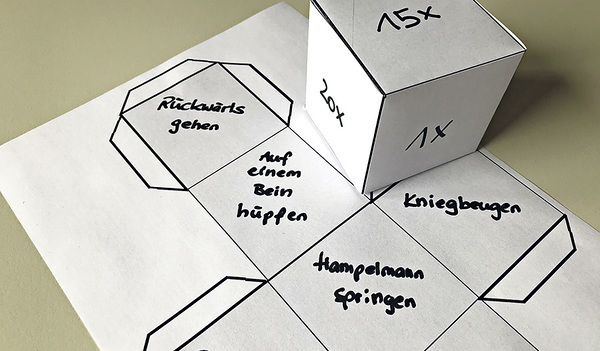 15x
20x
1x
Rückwärts
gehen
Auf
einem
Bein
hüpfen
Kniegbeugen
Hampelmann
Springen